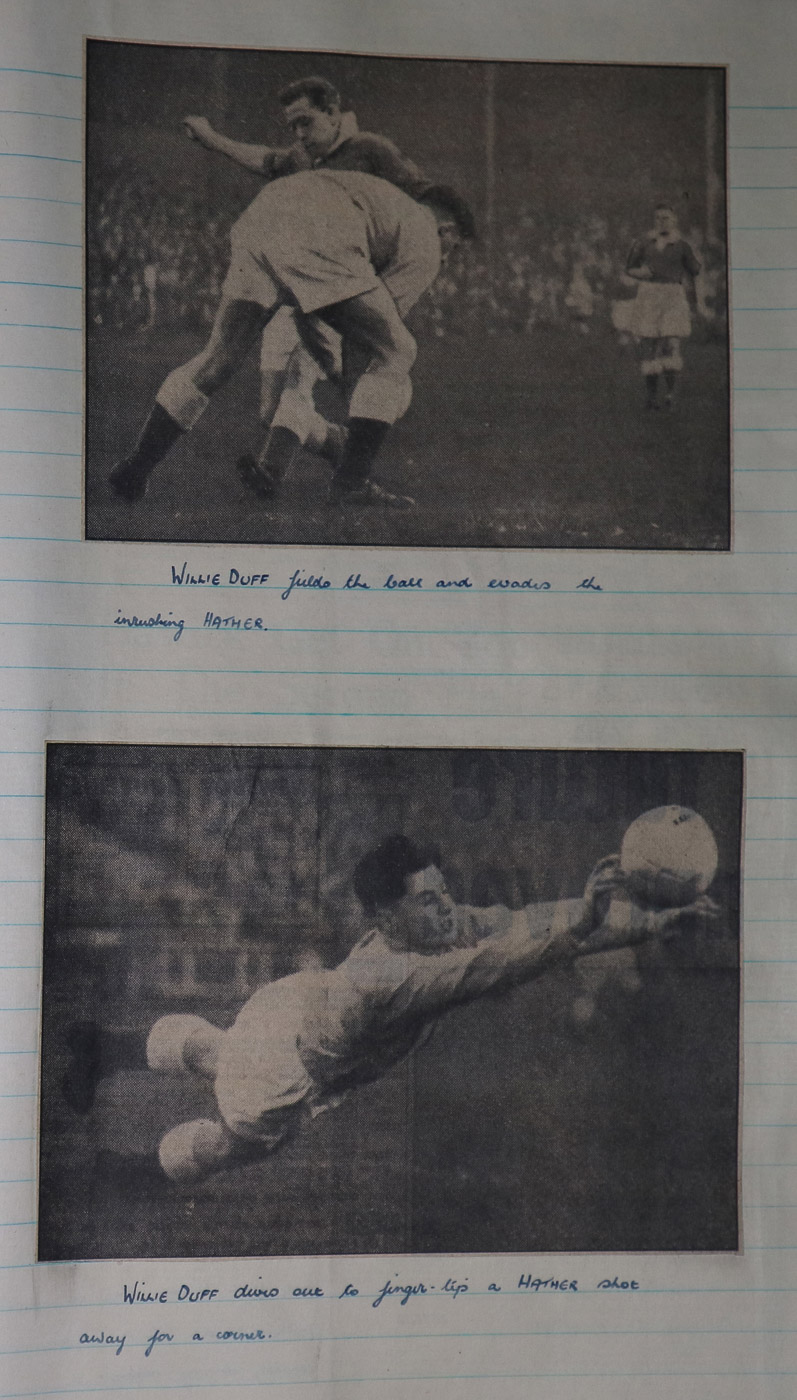 WILLIE DUFF fields the ball and evades the
inrushing HATHER.
WILLIE DUFF dives out to finger-tip a HATHER shot
away for a corner.